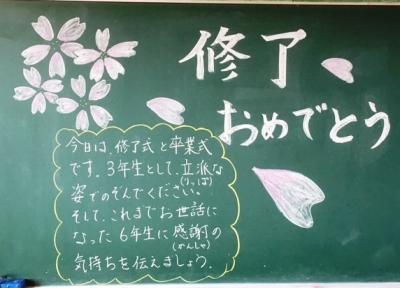 修了
おめでとう
今日は、修了式と卒業式
です。3年生として、立派な
(りっぱ)
姿でのぞんでください。
そして、これまでお世話に
なった6年生に感謝の
(かんしゃ)
気持ちを伝えましょう。